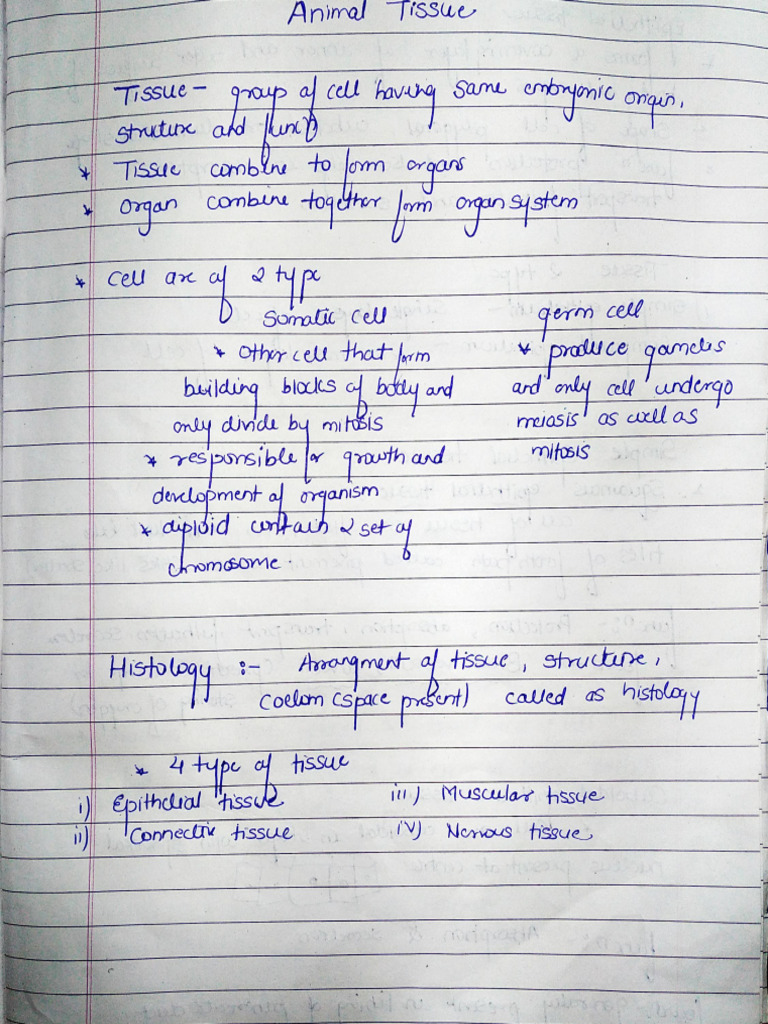 Animal Tissue
Tissue - group of cell having same embryonic origin,
struture and funcn
* Tissue combine to form organs
* organ combine together form organ system
* cell are of 2 type
somatic cell
* other cell that form
building blocks of body and
only divide by mitosis
* responsible for growth and
development of organism
* diploid contain 2 set of
chromosome.
germ cell
* produce gametes
and only cell undergo
meiosis as well as
mitosis
Histology :- Arrangment of tissue, structure,
coelom (space present) called as histology
* 4 type of tissue
i) Epithelial tissue
ii) Connective tissue
iii) Muscular tissue
iv) Nervous tissue